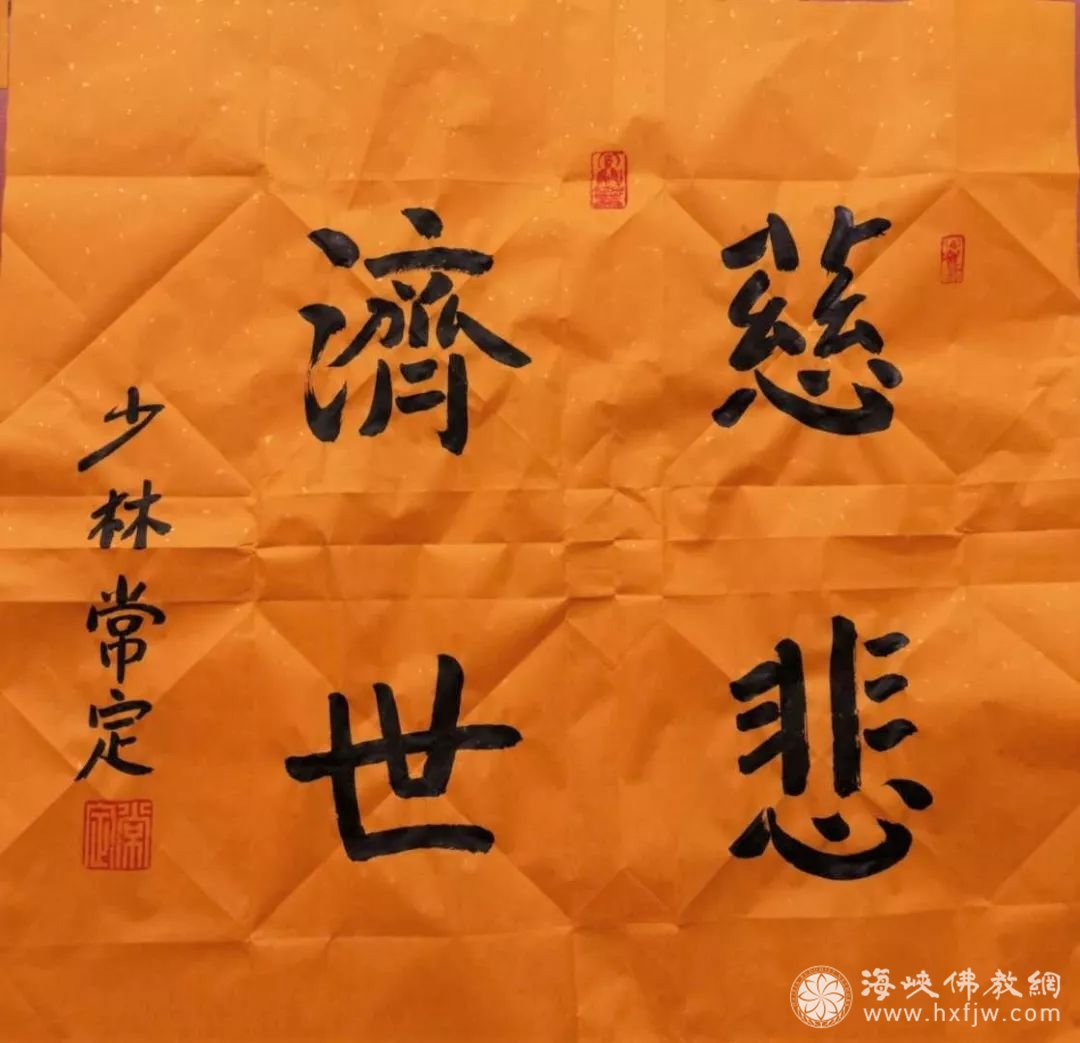 慈悲
濟世
少林常定
常定
海峽佛教網
www.hxfjw.com